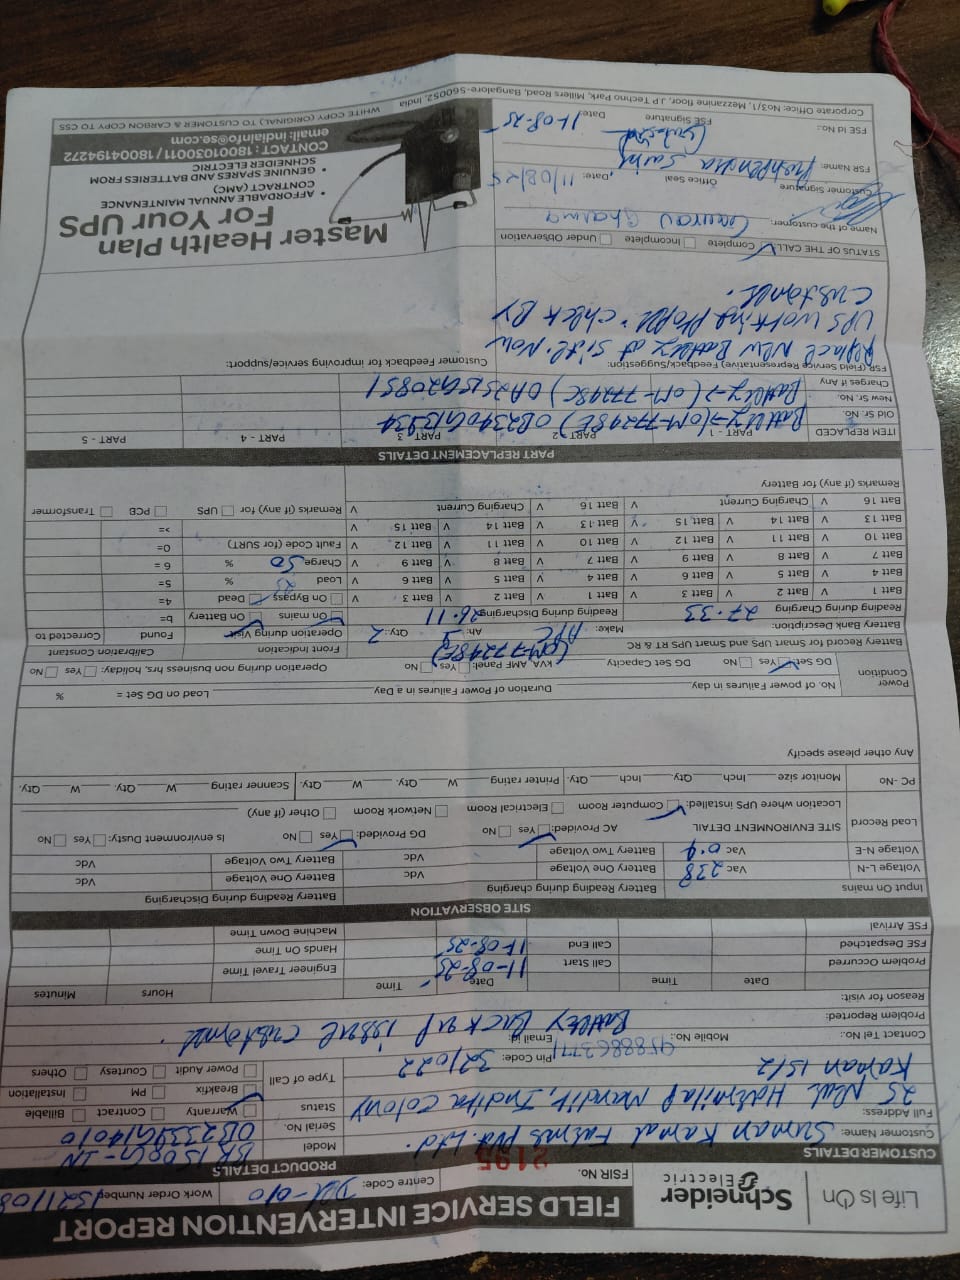 Life Is On
Schneider Electric
FIELD SERVICE INTERVENTION REPORT
FSIR No. 2195
Centre Code: Del-010
Work Order Number
CUSTOMER DETAILS
PRODUCT DETAILS
Customer Name: Suman Kamal Farms Pvt. Ltd.
Model BR1500G-IN
Full Address: 25 Near Harimilap Mandir, Indira Colony
Serial No. 0B2339G14010
Status Warranty Contract Billable
Kaman 15/2 Pin Code: 321022
Type of Call Breakfix PM Installation
Power Audit Courtesy Others
Contact Tel No.: Mobile No.: Email id:
Problem Reported: Battery Backup issue customer.
Reason for visit:
Date Time Date Time Hours Minutes
Problem Occurred Call Start 11-08-25 Engineer Travel Time
FSE Despatched Call End 11-08-25 Hands On Time
FSE Arrival Machine Down Time
SITE OBSERVATION
Input On mains Battery Reading during charging Battery Reading during Discharging
Voltage L-N 238 Vac Battery One Voltage Vdc Battery One Voltage Vdc
Voltage N-E 0.9 Vac Battery Two Voltage Vdc Battery Two Voltage Vdc
Load Record SITE ENVIRONMENT DETAIL AC Provided: Yes No DG Provided: Yes No Is environment Dusty: Yes No
Location where UPS installed: Computer Room Electrical Room Network Room Other (if any)
PC -No Monitor size Inch Qty Inch Qty. Printer rating W Qty. W Qty. Scanner rating W Qty. W Qty.
Any other please specify
Power Condition No. of power Failures in day Duration of Power Failures in a Day Load on DG Set = %
DG Set Yes No DG Set Capacity KVA AMF Panel: Yes No Operation during non business hrs, holiday: Yes No
Battery Record for Smart UPS and Smart UPS RT & RC (OM-77248E)
Front Indication Calibration Constant
Battery Bank Description: Make: APC Ah: 9 Qty.: 2
Operation during Visit Found Corrected to
Reading during Charging 27.33 Reading during Discharging 26.11
On mains On Battery b=
Batt 1 V Batt 2 V Batt 3 V Batt 1 V Batt 2 V Batt 3 V On Bypass Dead 4=
Batt 4 V Batt 5 V Batt 6 V Batt 4 V Batt 5 V Batt 6 V Load 25 % 5=
Batt 7 V Batt 8 V Batt 9 V Batt 7 V Batt 8 V Batt 9 V Charge 50 % 6 =
Batt 10 V Batt 11 V Batt 12 V Batt 10 V Batt 11 V Batt 12 V Fault Code (for SURT) 0=
Batt 13 V Batt 14 V Batt 15 V Batt 13 V Batt 14 V Batt 15 V >=
Batt 16 V Charging Current V Batt 16 V Charging Current V Remarks (if any) for UPS PCB Transformer
Remarks (if any) for Battery
PART REPLACEMENT DETAILS
ITEM REPLACED PART - 1 PART - 2 PART 3 PART - 4 PART - 5
Old Sr. No. Battery→(OM-77248E) 0B2340G13934
New Sr. No. Battery→(OM-77248C) 0A2515G20851
Charges if Any
FSR (Field Service Representative) Feedback/Suggestion:
Customer Feedback for improving service/support:
Replace New Battery at site. Now
UPS working proper. check BY
customer.
STATUS OF THE CALL Complete Incomplete Under Observation
Name of the customer: Gaurav Sharma
Customer Signature Office Seal Date: 11/08/25
FSR Name: Pushpendra Saini
FSE ID No.: FSE Signature Date: 11-08-25
Master Health Plan
For Your UPS
• AFFORDABLE ANNUAL MAINTENANCE CONTRACT (AMC)
• GENUINE SPARES AND BATTERIES FROM SCHNEIDER ELECTRIC
CONTACT : 18001030011 / 18004194272
email: indiainfo@se.com
WHITE COPY (ORIGINAL) TO CUSTOMER & CARBON COPY TO CSS
Corporate Office: No3/1, Mezzanine floor, J P Techno Park, Millers Road, Bangalore-560052, India